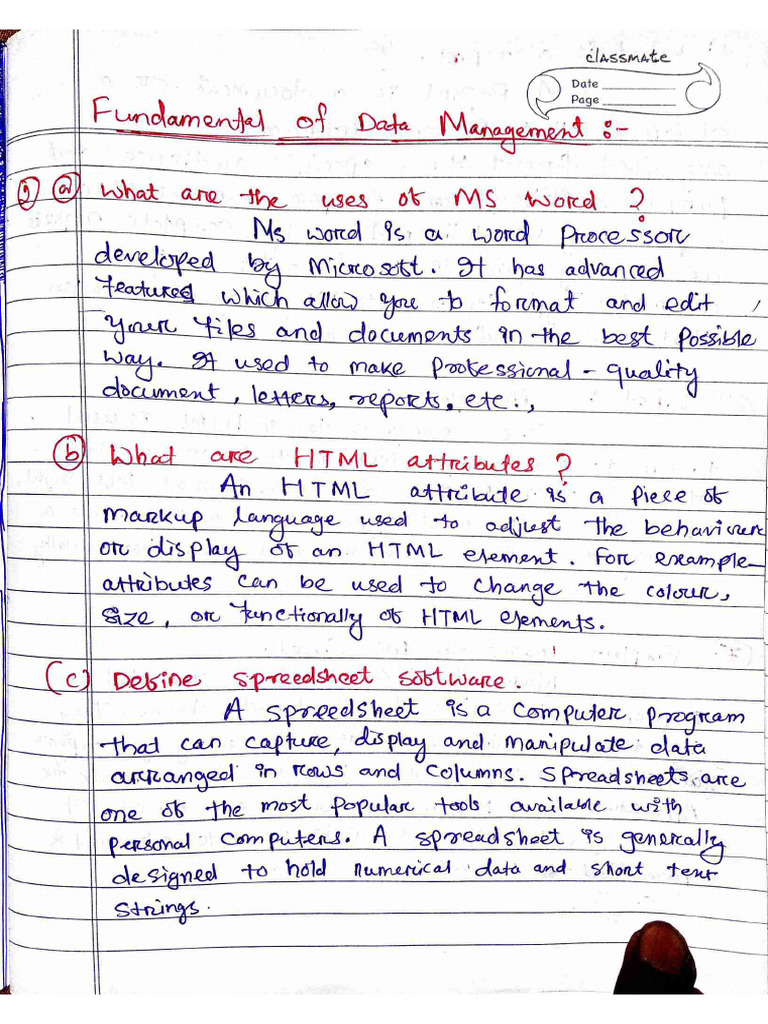 classmate
Date
Page
Fundamental of Data Management :-
1) a) What are the uses of MS Word ?
Ms word is a word Processor
developed by Microsoft. It has advanced
features which allow you to format and edit
your files and documents in the best possible
way. It used to make professional-quality
document, letters, reports, etc.,
b) What are HTML attributes ?
An HTML attribute is a piece of
markup language used to adjust the behaviour
or display of an HTML element. For example-
attributes can be used to change the colour,
size, or functionally of HTML elements.
(c) Define Spreedsheet software.
A Spreedsheet is a computer program
that can capture, display and manipulate data
arranged in rows and columns. Spreadsheets are
one of the most popular tools available with
personal computers. A spreadsheet is generally
designed to hold numerical data and short text
strings.